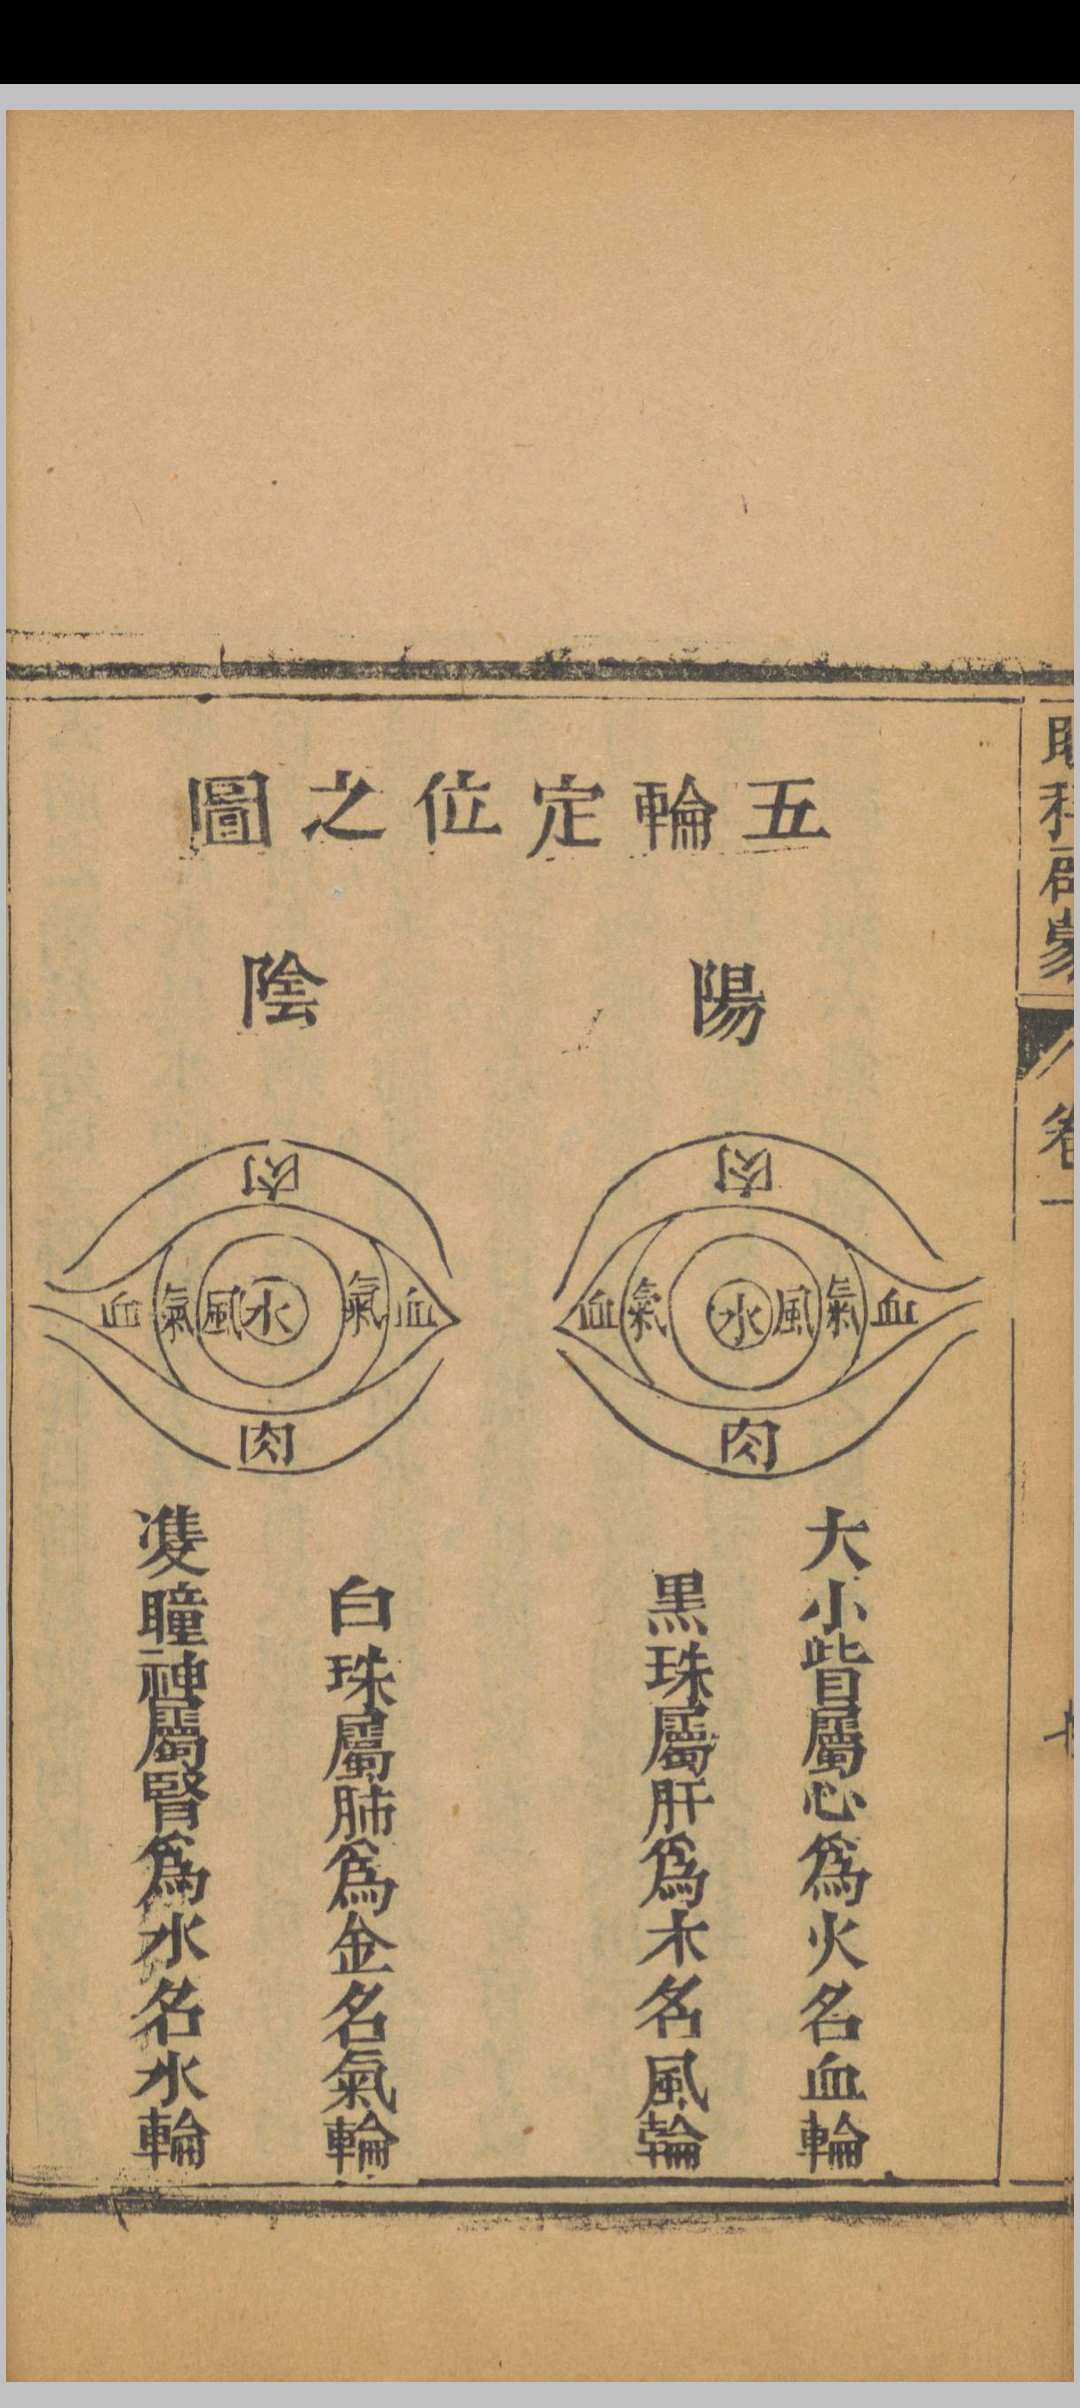 五輪定位之圖
陽
陰
肉
血氣水風氣血
肉
肉
血氣風水氣血
肉
大小眥屬心爲火名血輪
黒珠屬肝爲木名風輪
白珠屬肺爲金名氣輪
雙瞳神屬腎爲水名水輪